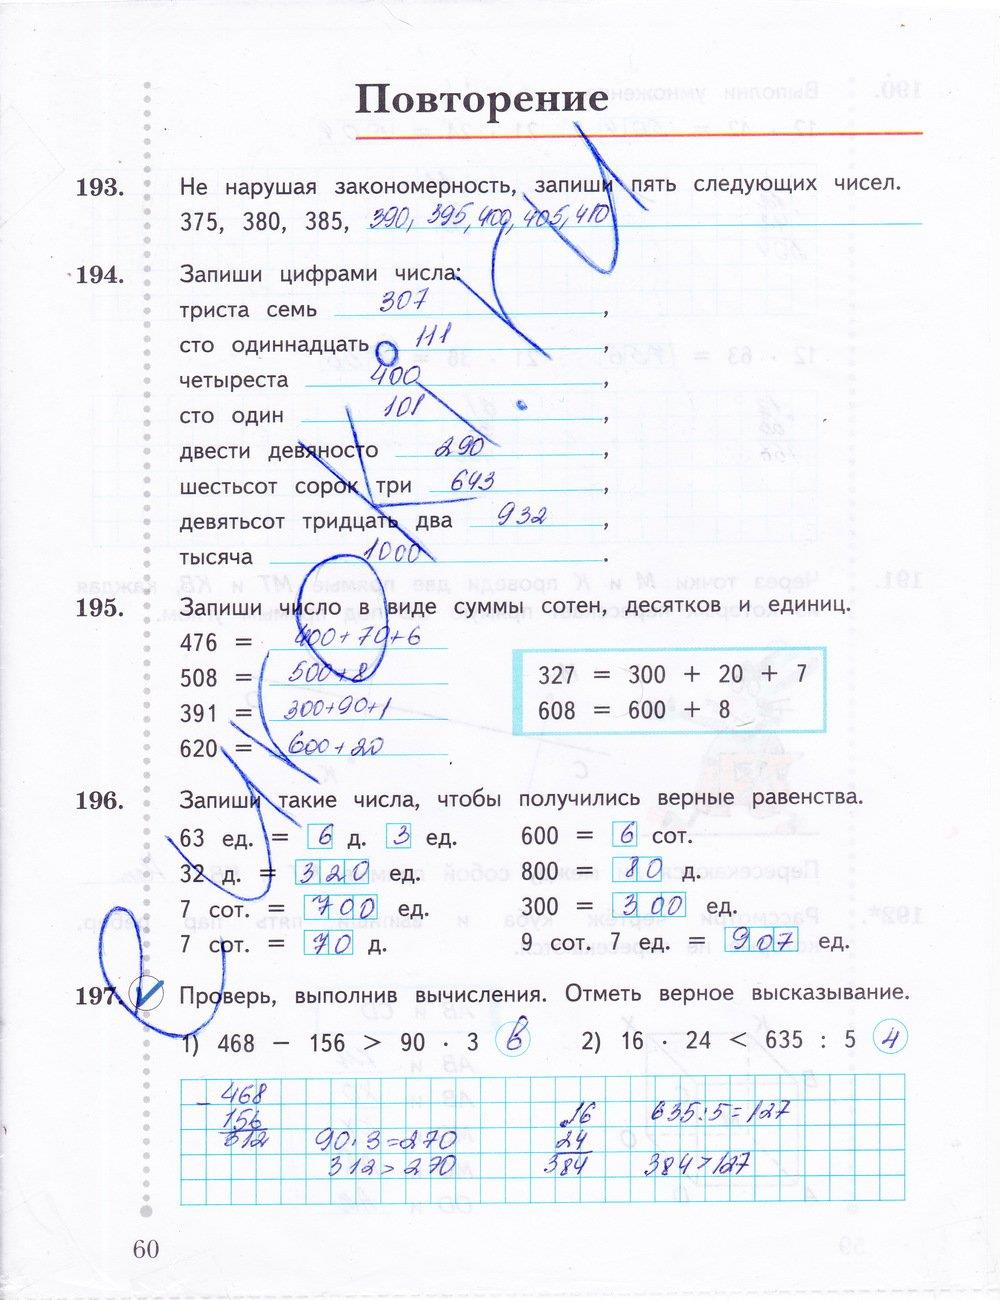 Повторение
193. Не нарушая закономерность, запиши пять следующих чисел.
375, 380, 385, 390, 395, 400, 405, 410
194. Запиши цифрами числа:
триста семь 307,
сто одиннадцать 111,
четыреста 400,
сто один 101,
двести девяносто 290,
шестьсот сорок три 643,
девятьсот тридцать два 932,
тысяча 1000.
195. Запиши число в виде суммы сотен, десятков и единиц.
476 = 400+70+6
508 = 500+8
391 = 300+90+1
620 = 600+20
327 = 300 + 20 + 7
608 = 600 + 8
196. Запиши такие числа, чтобы получились верные равенства.
63 ед. = 6 д. 3 ед. 600 = 6 сот.
32 д. = 320 ед. 800 = 80 д.
7 сот. = 700 ед. 300 = 300 ед.
7 сот. = 70 д. 9 сот. 7 ед. = 907 ед.
197. Проверь, выполнив вычисления. Отметь верное высказывание.
1) 468 − 156 > 90 · 3 в 2) 16 · 24 < 635 : 5 ч
− 468
156
312
90·3=270
312>270
16
24
384
635:5=127
384>127
60